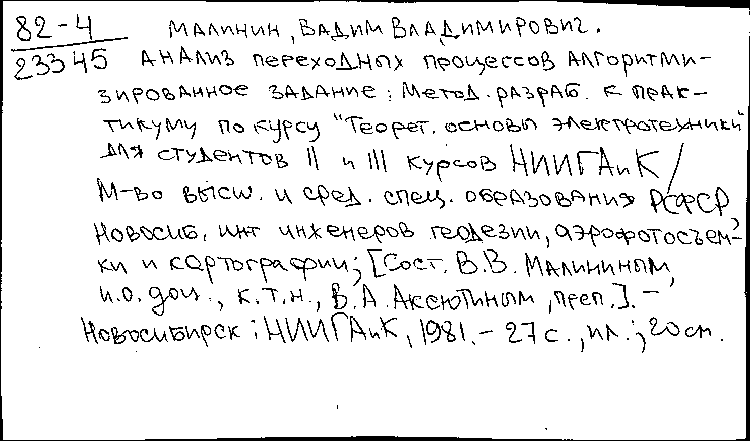 82-4
23345
Малинин, Вадим Владимирович.
Анализ переходных процессов алгоритми-
зированное задание: Метод. разраб. к прак-
тикуму по курсу "Теорет. основы электротехники"
для студентов II и III курсов НИИГАиК /
М-во высш. и сред. спец. образования РСФСР,
Новосиб. инт инженеров геодезии, аэрофотосъем-
ки и картографии; [Сост. В.В. Малининым,
и.о. доц., к.т.н., В.А. Аксютиным, преп.]. -
Новосибирск: НИИГАиК, 1981. - 27 с., ил.; 20 см.